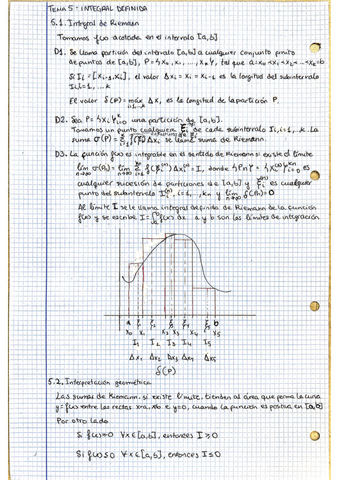 TEMA 5: INTEGRAL DEFINIDA
5.1. Integral de Riemann
Tomamos f(x) acotada en el intervalo [a,b]
D1. Se llama partición del intervalo [a,b] a cualquier conjunto finito
de puntos de [a,b], P={x₀, x₁, ..., xₖ}, tal que a=x₀<x₁<x₂<...<xₖ=b
Si Iᵢ=[xᵢ₋₁,xᵢ], el valor Δxᵢ = xᵢ-xᵢ₋₁ es la longitud del subintervalo
Iᵢ, i=1, ..., k
El valor δ(P) = máx Δxᵢ, es la longitud de la partición P.
i=1,...,k
D2. Sea P={xᵢ}ᵏᵢ₌₀ una partición de [a,b].
Tomamos un punto cualquiera ξᵢ de cada subintervalo Iᵢ, i=1, ..k. La
suma σ(P) = Σ f(ξᵢ) Δxᵢ se llama suma de Riemann.
D3. La función f(x) es integrable en el sentido de Riemann si existe el límite
lim σ(Pₙ) = lim Σ f(ξᵢ⁽ⁿ⁾) Δxᵢ⁽ⁿ⁾ = I, donde {Pₙ} = {xᵢ⁽ⁿ⁾} es
n→∞ n→∞ i=1
cualquier sucesión de particiones de [a,b] y ξᵢ⁽ⁿ⁾ es cualquier
punto del subintervalo Iᵢ⁽ⁿ⁾, i=1, ..., kₙ y lim δ(Pₙ)=0
Al límite I se le llama integral definida de Riemann de la función
f(x) y se escribe I = ∫ f(x) dx a y b son los límites de integración
a b
x₀ x₁ x₂ x₃ x₄ x₅
I₁ I₂ I₃ I₄ I₅
Δx₁ Δx₂ Δx₃ Δx₄ Δx₅
δ(P)
5.2. Interpretación geométrica
Las sumas de Riemann, si existe límite, tienden al área que forma la curva
y=f(x) entre las rectas x=a, x=b e y=0, cuando la función es positiva en [a,b]
Por otro lado
Si f(x)≥0 ∀x∈[a,b], entonces I≥0
Si f(x)≤0 ∀x∈[a,b], entonces I≤0